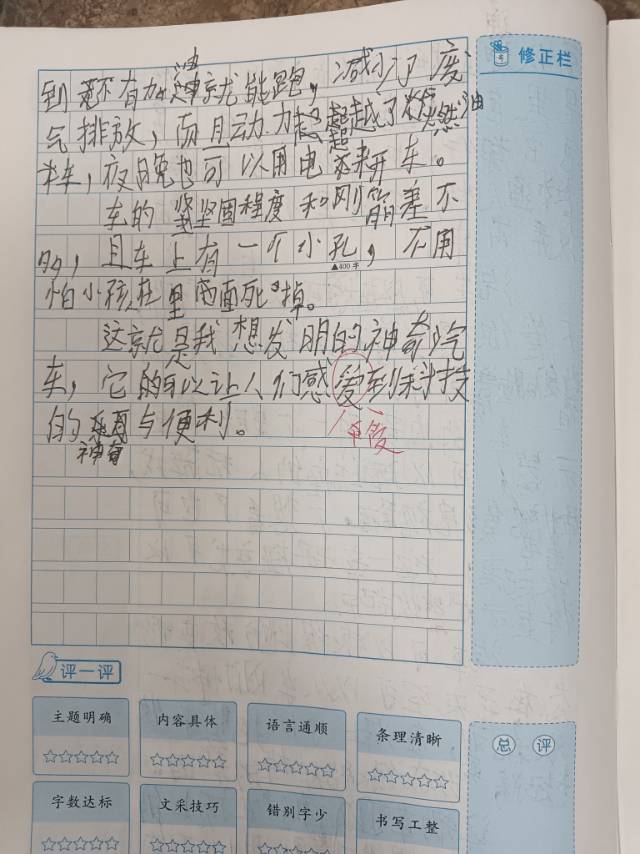 修正栏
油
到 还有加 就能跑，减少了废
气排放，而且动力 超越了 燃油
超
车，夜晚也可以用电来开车。
车的 坚固程度和刚筋差不
多，且车上有一个小孔，不用
▲400字
怕小孩在里面死掉。
这就是我想发明的神奇汽
车，它的可以让人们感爱到科技
的 与便利。
神奇
评一评
主题明确 内容具体 语言通顺 条理清晰
总评
字数达标 文采技巧 错别字少 书写工整